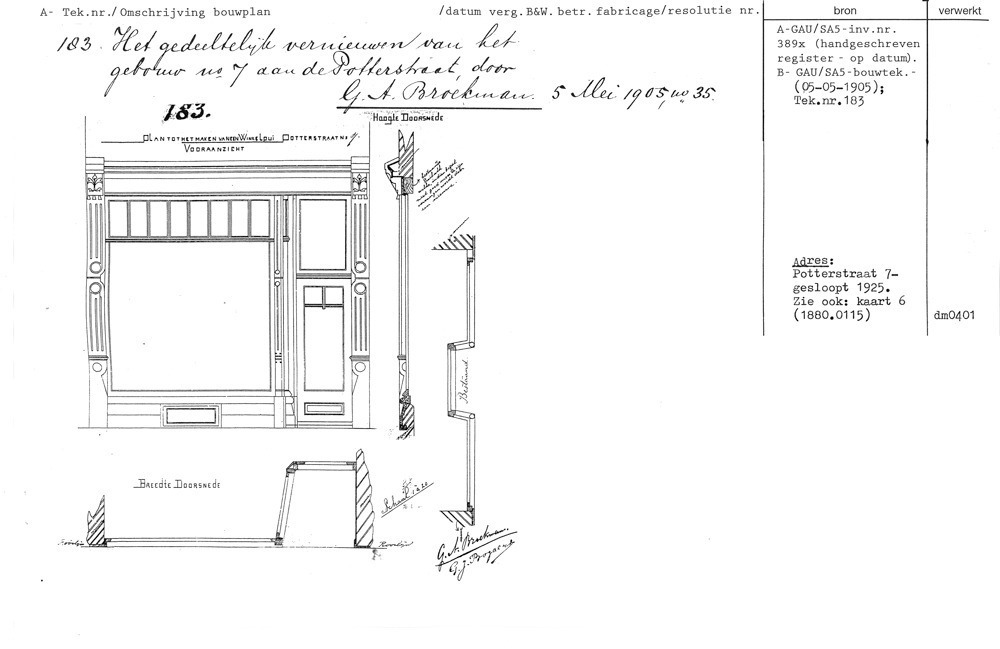 A- Tek.nr./Omschrijving bouwplan
/datum verg.B&W.betr.fabricage/resolutie nr.
bron
verwerkt
183. Het gedeeltelijk vernieuwen van het
gebouw no 7 aan de Potterstraat, door
G. A. Broekman. 5 Mei 1905, no 35.
A-GAU/SA5-inv.nr.
389x (handgeschreven
register - op datum).
B- GAU/SA5-bouwtek.-
(05-05-1905);
Tek.nr.183
183.
PLAN TOT HET MAKEN VAN EEN WINKELPUI POTTERSTRAAT No 7.
VOORAANZICHT
HOOGTE DOORSNEDE
Adres:
Potterstraat 7-
gesloopt 1925.
Zie ook: kaart 6
(1880.0115)
dm0401
Bestaand.
BREEDTE DOORSNEDE
Schaal 1 à 20
Rooilijn
Rooilijn
G. A. Broekman.
G. J.